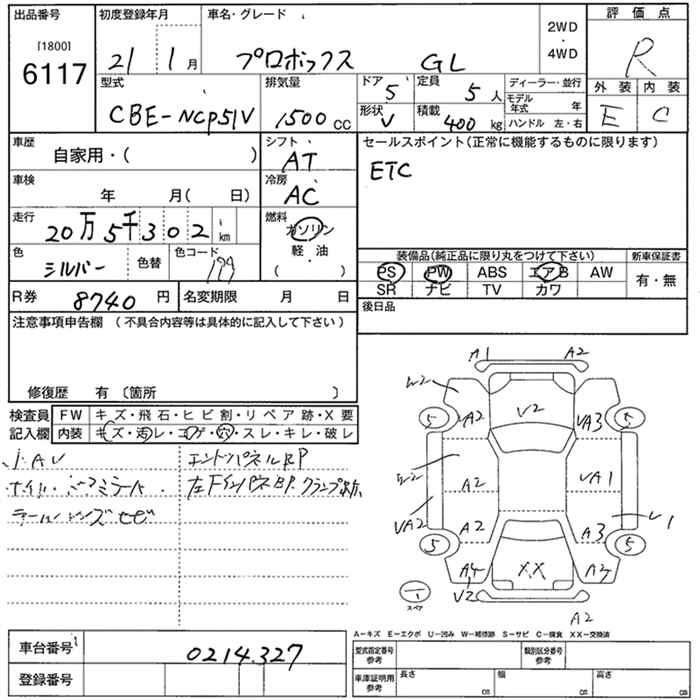 出品番号 初度登録年月 車名・グレード 評価点
[1800] 2WD
6117 21 1月 プロボックス GL ・ R
4WD
型式 排気量 ドア 5 定員 5人 ディーラー・並行 外装 内装
CBE-NCP51V 1500cc 形状 V 積載 400kg モデル年式 年 E C
ハンドル 左・右
車歴 シフト セールスポイント(正常に機能するものに限ります)
自家用・( ) AT ETC
車検 冷房
年 月( 日) AC
走行 燃料
20万5千302km ガソリン
色 色替 色コード 軽・油 装備品(純正品に限り丸をつけて下さい) 新車保証書
シルバー 199 ( ) PS PW ABS エアB AW 有・無
R券 8740円 名変期限 月 日 SR ナビ TV カワ
注意事項申告欄 (不具合内容等は具体的に記入して下さい) 後日品
修復歴 有 〔箇所 〕
検査員 FW キズ・飛石・ヒビ割・リペア跡・X要
記入欄 内装 キズ・汚レ・コゲ・穴・スレ・キレ・破レ
エンドパネルBP
A1 A2
W2 A2 V2 VA3
5 5
A2 VA1
VA2 A2 A3 V1
5 5
A4 XX A2
V2
スペア
A2
A-キズ E-エクボ U-凹み W-補修跡 S-サビ C-腐食 XX-交換済
車台番号 0214327 型式指定番号 参考 類別区分番号 参考
登録番号 車庫証明用 参考 長さ cm 幅 cm 高さ cm